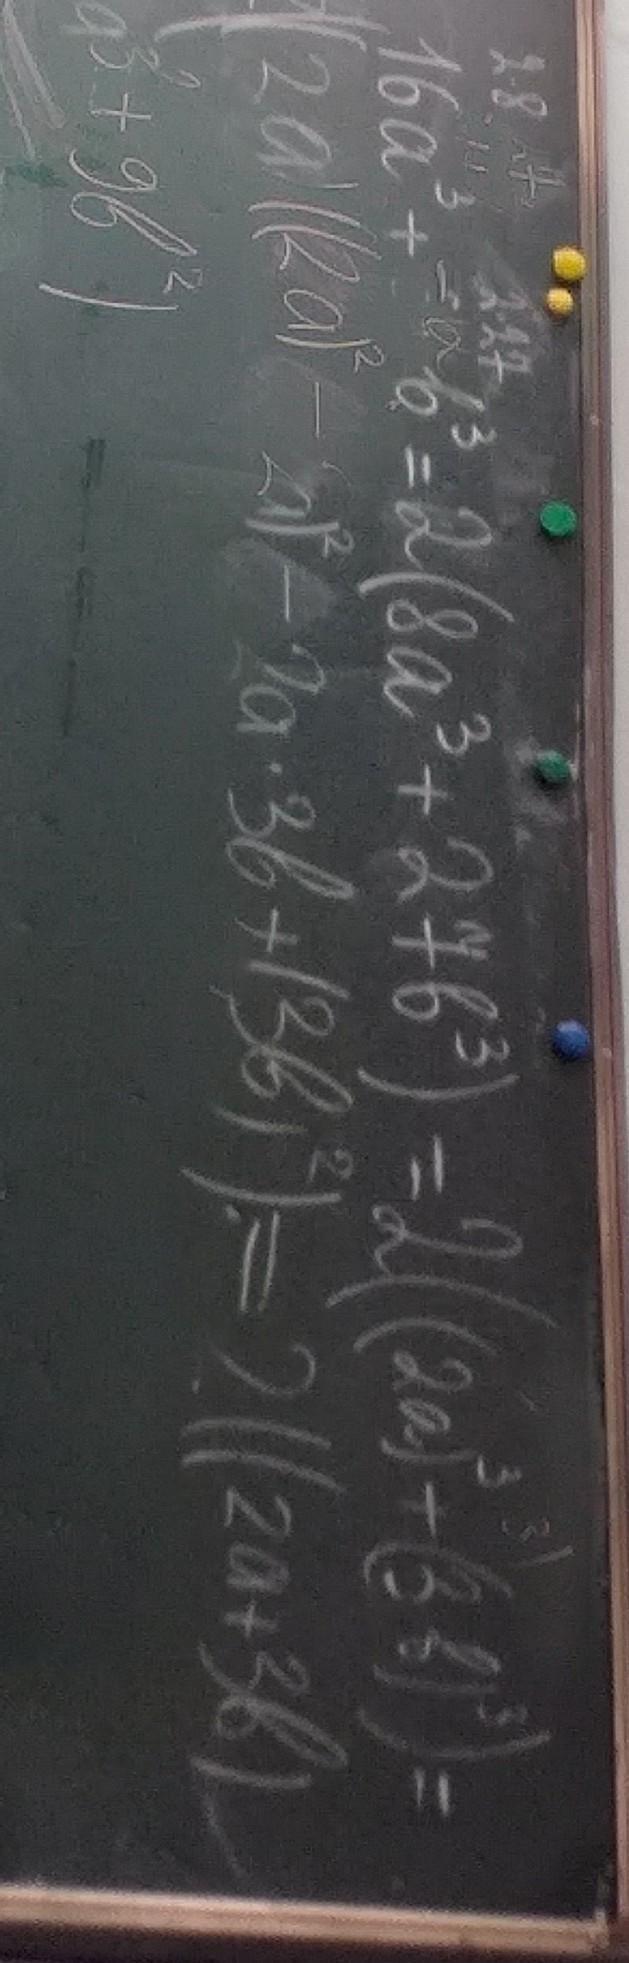 2·8 2·27
16a³ + b³ = 2(8a³ + 27b³) = 2((2a)³ + (3b)³) =
2a)((2a)² - 2a)² - 2a·3b + (3b)²) = 2((2a + 3b)
a³ + 9b²)